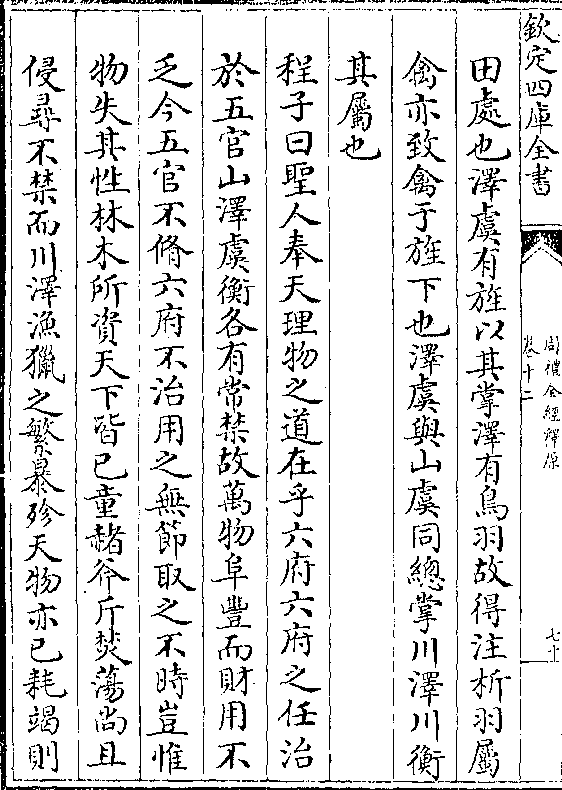 欽定四庫全書
周禮全經釋原
卷十二
七十
田處也澤虞有旌以其掌澤有鳥羽故得注析羽屬
禽亦致禽于旌下也澤虞與山虞同總掌川澤川衡
其屬也
程子曰聖人奉天理物之道在乎六府六府之任治
於五官山澤虞衡各有常禁故萬物阜豐而財用不
乏今五官不脩六府不治用之無節取之不時豈惟
物失其性林木所資天下皆已童赭斧斤焚蕩尚且
侵尋不禁而川澤漁獵之繁暴殄天物亦已耗竭則